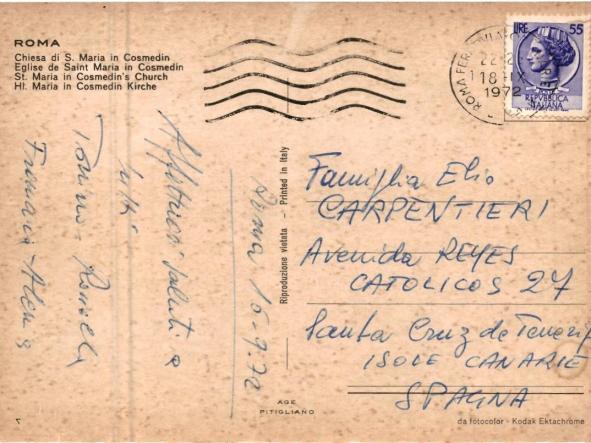 ROMA
Chiesa di S. Maria in Cosmedin
Eglise de Saint Maria in Cosmedin
St. Maria in Cosmedin's Church
Hl. Maria in Cosmedin Kirche
LIRE 55
REPVBBLICA
ITALIANA
ROMA FER
22
18 IX
1972
Affettuosi saluti a
tutti
Roma 16-9-72
Riproduzione vietata - Printed in Italy
Famiglia Elio
CARPENTIERI
Avenida REYES
CATOLICOS 27
Santa Cruz de Tenerif
ISOLE CANARIE
SPAGNA
AGE
PITIGLIANO
7
da fotocolor - Kodak Ektachrome